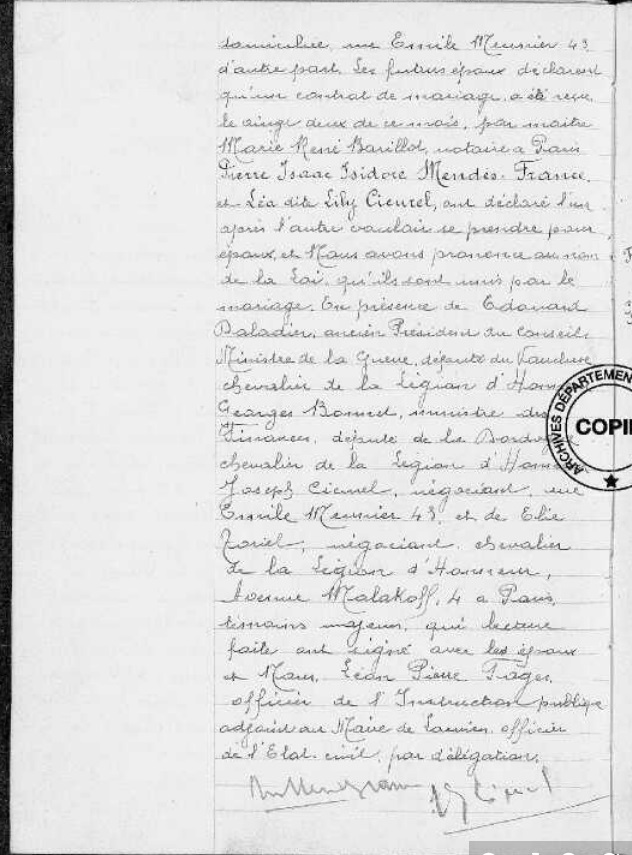 domiciliée, rue Emile Meunier 43
d'autre part. Les futurs époux déclarent
qu'un contrat de mariage a été reçu
le vingt deux de ce mois, par maitre
Marie René Barillot, notaire a Paris
Pierre Isaac Isidore Mendès-France,
et Léa dite Lily Cicurel, ont déclaré l'un
après l'autre vouloir se prendre pour
époux, et Nous avons prononcé au nom
de la Loi, qu'ils sont unis par le
mariage. En présence de Edouard
Daladier, ancien Président du Conseil,
Ministre de la Guerre, député du Vaucluse
chevalier de la Légion d'Honn
Georges Bonnet, ministre des
Finances, député de la Dordogne
chevalier de la Légion d'Honn
Joseph Cicurel, négociant, rue
Emile Meunier 43, et de Elie
négociant, chevalier
de la Légion d'Honneur,
Avenue Malakoff, 4 a Paris,
témoins majeurs, qui lecture
faite ont signé avec les époux
et Nous, Léon Pierre
officier de l'Instruction publique
adjoint au Maire de Louviers, officier
de l'Etat-civil, par délégation.
ARCHIVES DÉPARTEMEN
COPI